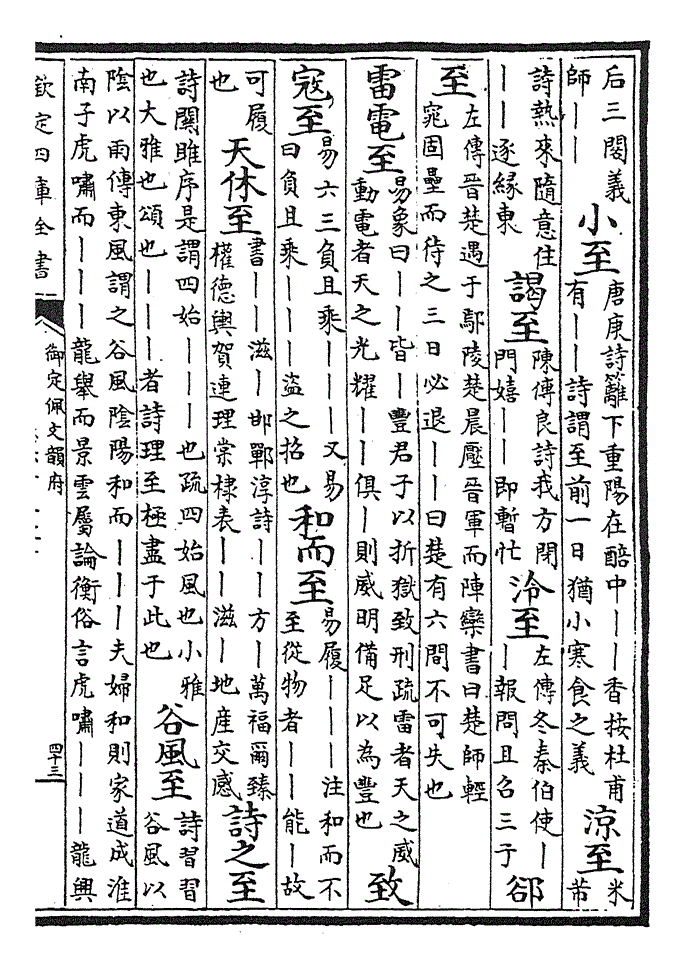 后三閣義
師丨丨
小至
唐庚詩籬下重陽在醅中丨丨香按杜甫
有丨丨詩謂至前一日猶小寒食之義
涼至
米
芾
詩熱來隨意住
丨丨逐緣東
謁至
陳傅良詩我方閉
門嬉丨丨即暫忙
泠至
左傳冬秦伯使丨
丨報問且召三子
郤
至
左傳晉楚遇于鄢陵楚晨壓晉軍而陣欒書曰楚師輕
窕固壘而待之三日必退丨丨曰楚有六問不可失也
雷電至
易象曰丨丨皆丨豐君子以折獄致刑疏雷者天之威
動電者天之光耀丨丨俱丨則威明備足以為豐也
致
寇至
易六三負且乘丨丨丨又易
曰負且乘丨丨丨盜之招也
和而至
易履丨丨丨注和而不
至從物者丨丨能丨故
可履
也
天休至
書丨丨滋丨邯鄲淳詩丨丨方丨萬福爾臻
權德輿賀連理棠棣表丨丨滋丨地産交感
詩之至
詩關雎序是謂四始丨丨丨也疏四始風也小雅
也大雅也頌也丨丨丨者詩理至極盡于此也
谷風至
詩習習
谷風以
陰以雨傳東風謂之谷風陰陽和而丨丨丨夫婦和則家道成淮
南子虎嘯而丨丨丨龍舉而景雲屬論衡俗言虎嘯丨丨丨龍興
欽定四庫全書
御定佩文韻府
四十三